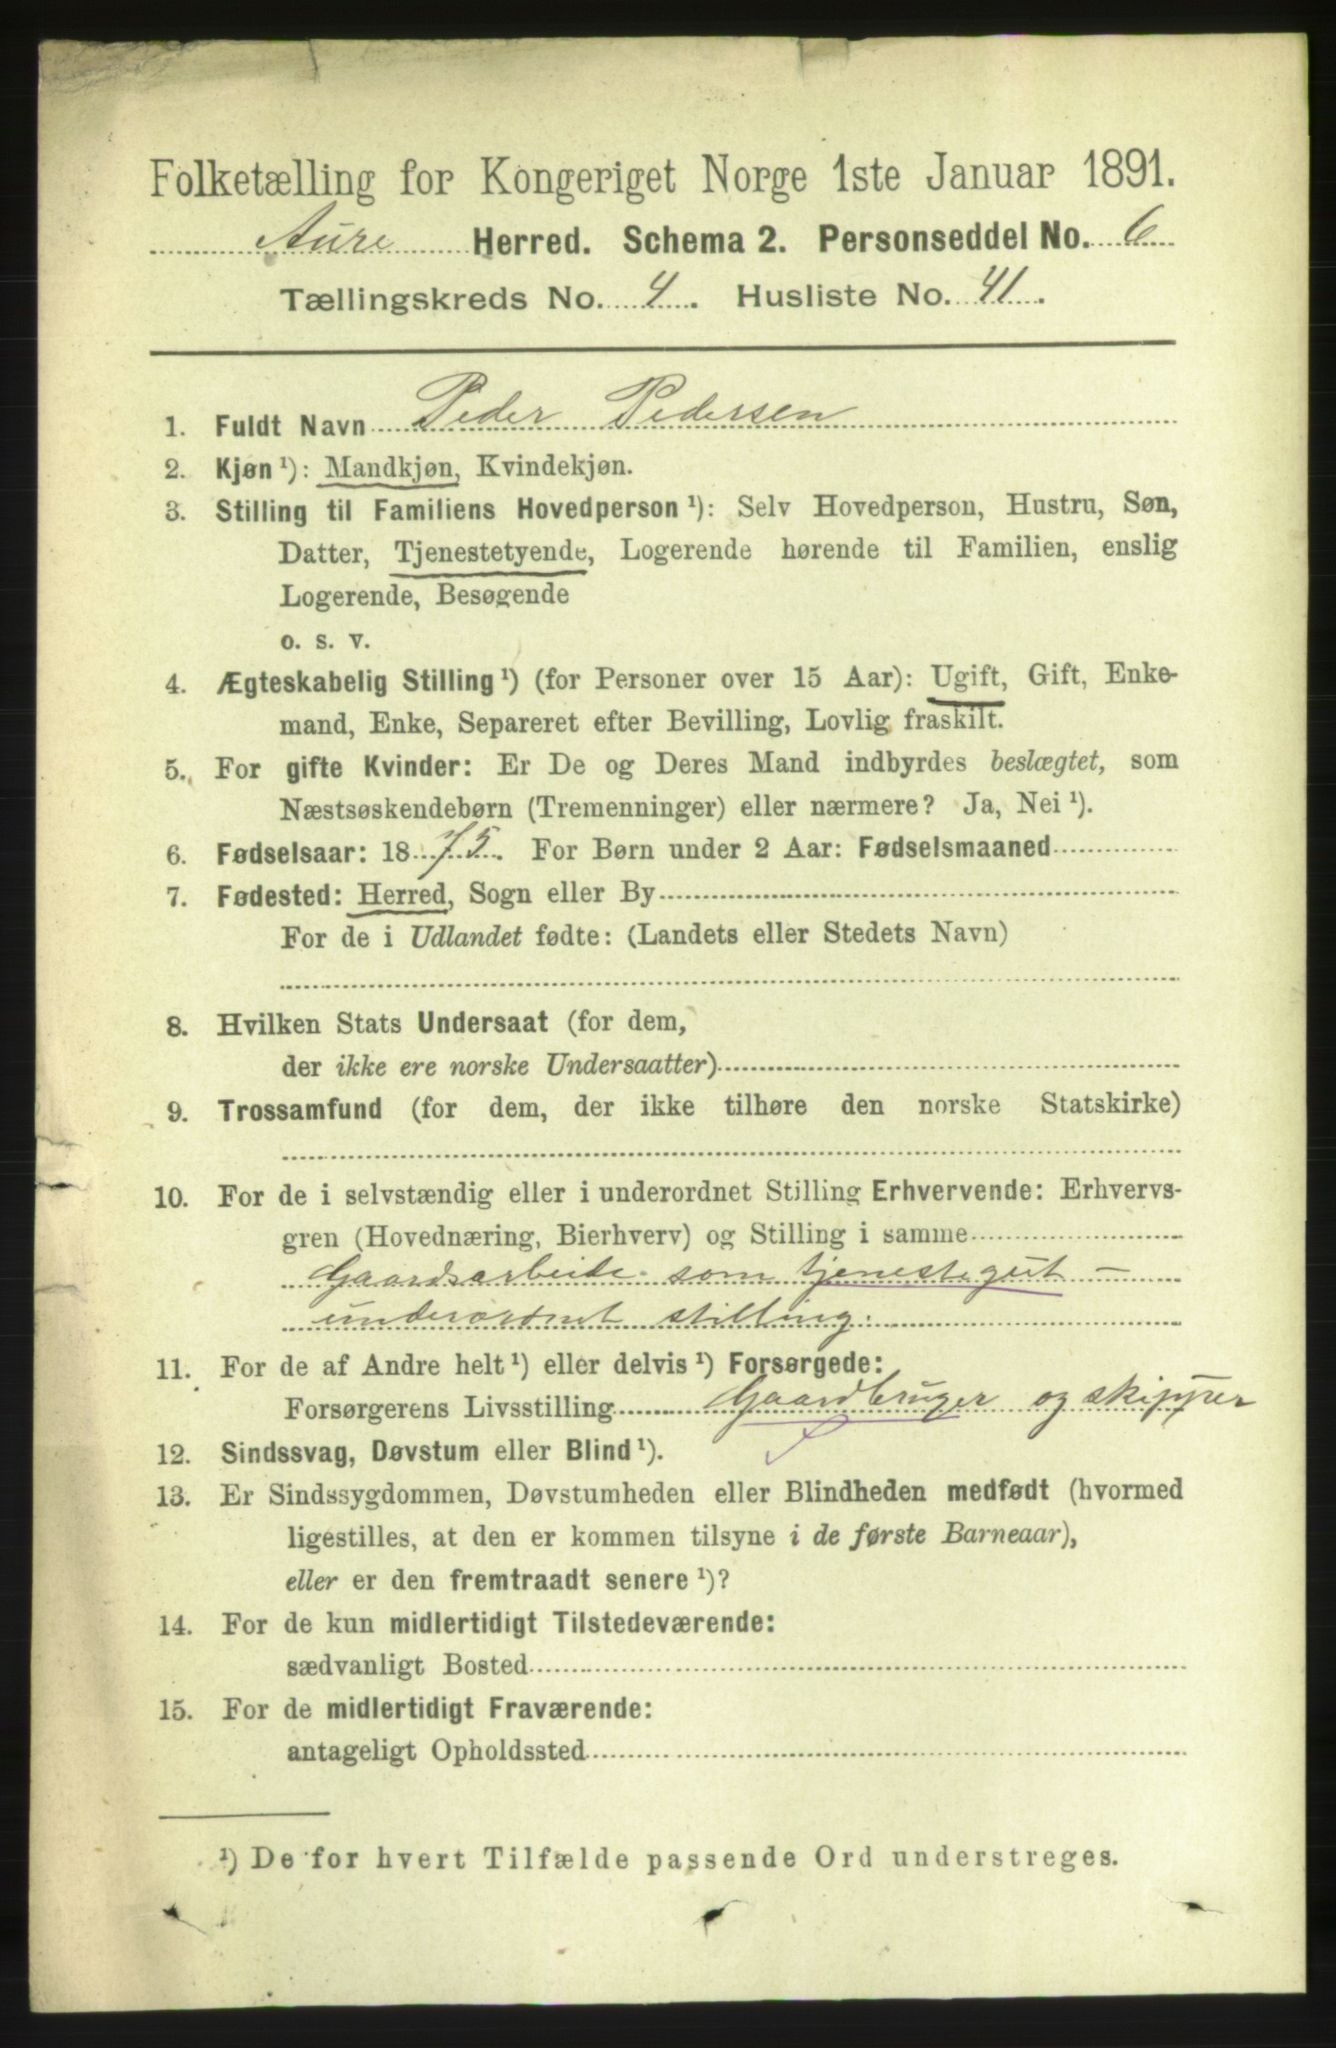 Folketælling for Kongeriget Norge 1ste Januar 1891.
Aure Herred. Schema 2. Personseddel No. 6
Tællingskreds No. 4. Husliste No. 41.
1. Fuldt Navn Peder Pedersen
2. Kjøn ¹): Mandkjøn, Kvindekjøn.
3. Stilling til Familiens Hovedperson ¹): Selv Hovedperson, Hustru, Søn,
Datter, Tjenestetyende, Logerende hørende til Familien, enslig
Logerende, Besøgende
o. s. v.
4. Ægteskabelig Stilling ¹) (for Personer over 15 Aar): Ugift, Gift, Enke-
mand, Enke, Separeret efter Bevilling, Lovlig fraskilt.
5. For gifte Kvinder: Er De og Deres Mand indbyrdes beslægtet, som
Næstsøskendebørn (Tremenninger) eller nærmere? Ja, Nei ¹).
6. Fødselsaar: 1875. For Børn under 2 Aar: Fødselsmaaned
7. Fødested: Herred, Sogn eller By
For de i Udlandet fødte: (Landets eller Stedets Navn)
8. Hvilken Stats Undersaat (for dem,
der ikke ere norske Undersaatter)
9. Trossamfund (for dem, der ikke tilhøre den norske Statskirke)
10. For de i selvstændig eller i underordnet Stilling Erhvervende: Erhvervs-
gren (Hovednæring, Bierhverv) og Stilling i samme
Gaardsarbeide som tjenestegut –
underordnet stilling.
11. For de af Andre helt ¹) eller delvis ¹) Forsørgede:
Forsørgerens Livsstilling Gaardbruger og skipper
12. Sindssvag, Døvstum eller Blind ¹).
13. Er Sindssygdommen, Døvstumheden eller Blindheden medfødt (hvormed
ligestilles, at den er kommen tilsyne i de første Barneaar),
eller er den fremtraadt senere ¹)?
14. For de kun midlertidigt Tilstedeværende:
sædvanligt Bosted
15. For de midlertidigt Fraværende:
antageligt Opholdssted
¹) De for hvert Tilfælde passende Ord understreges.